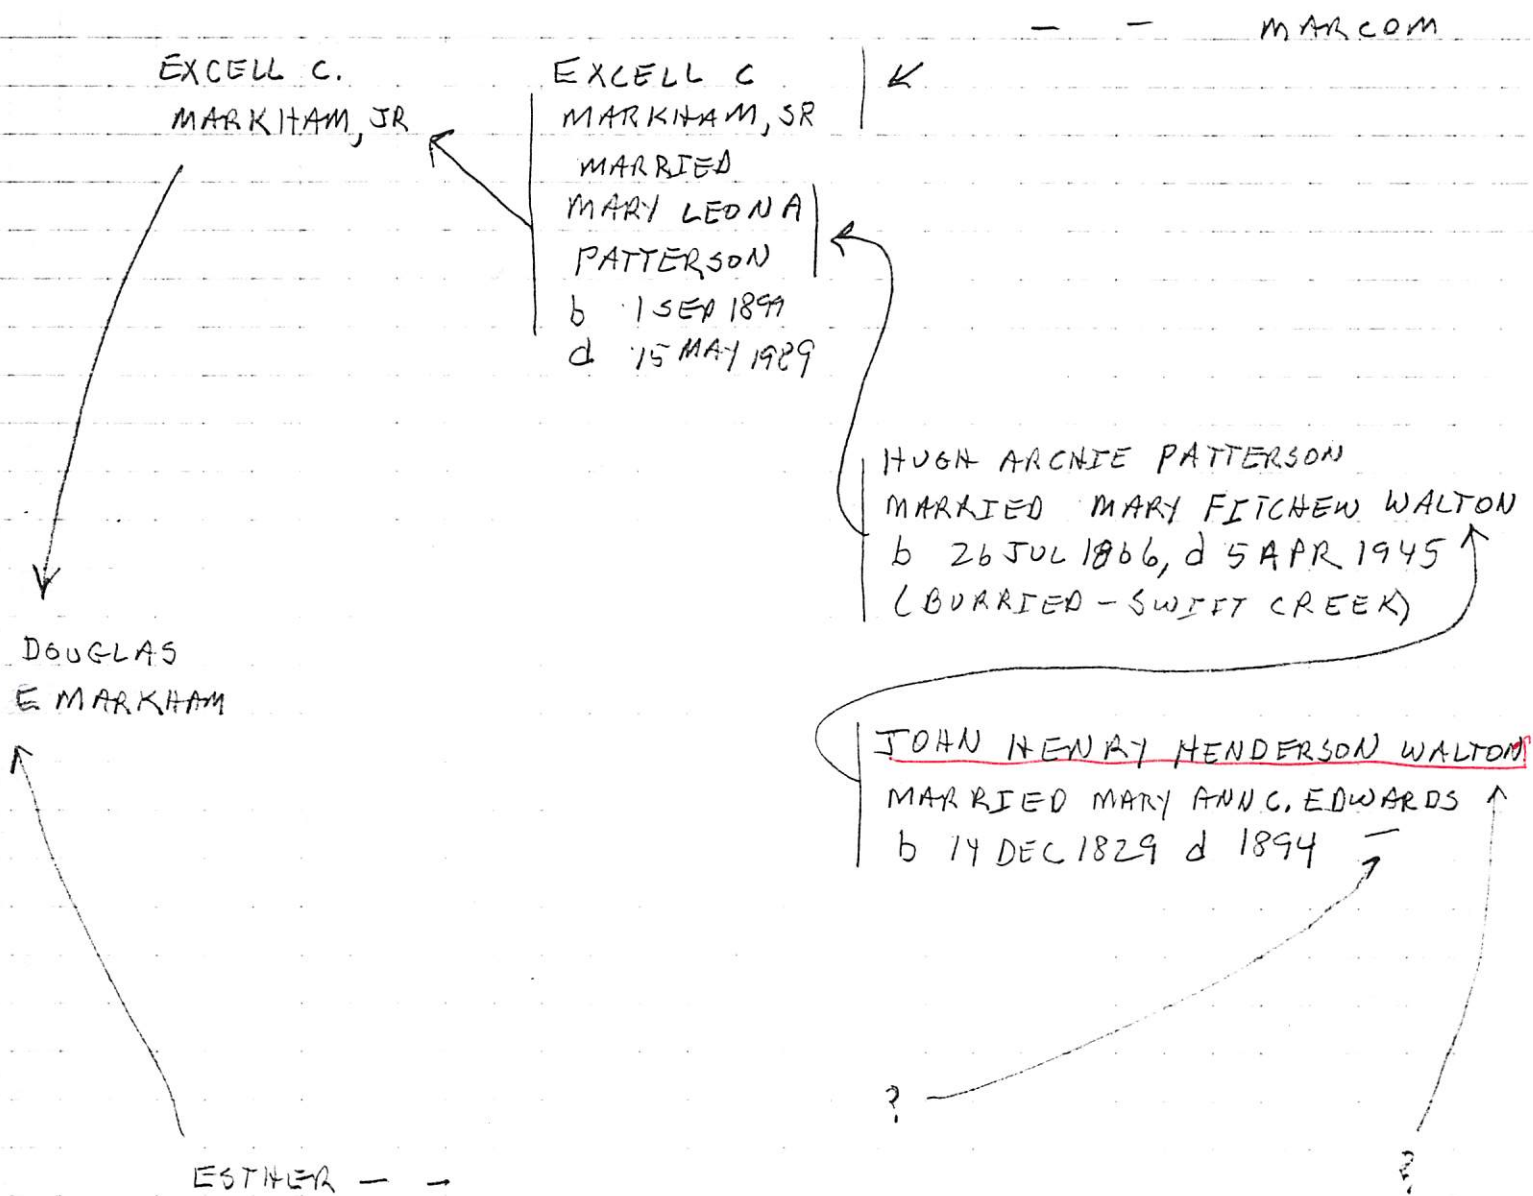 — — MARCOM
EXCELL C.
MARKHAM, JR
EXCELL C
MARKHAM, SR
MARRIED
MARY LEONA
PATTERSON
b 1 SEP 1899
d 15 MAY 1989
HUGH ARCHIE PATTERSON
MARRIED MARY FITCHEW WALTON
b 26 JUL 1866, d 5 APR 1945
(BURRIED - SWIFT CREEK)
DOUGLAS
E MARKHAM
JOHN HENRY HENDERSON WALTON
MARRIED MARY ANN C. EDWARDS
b 14 DEC 1829 d 1894 —
?
?
ESTHER — —